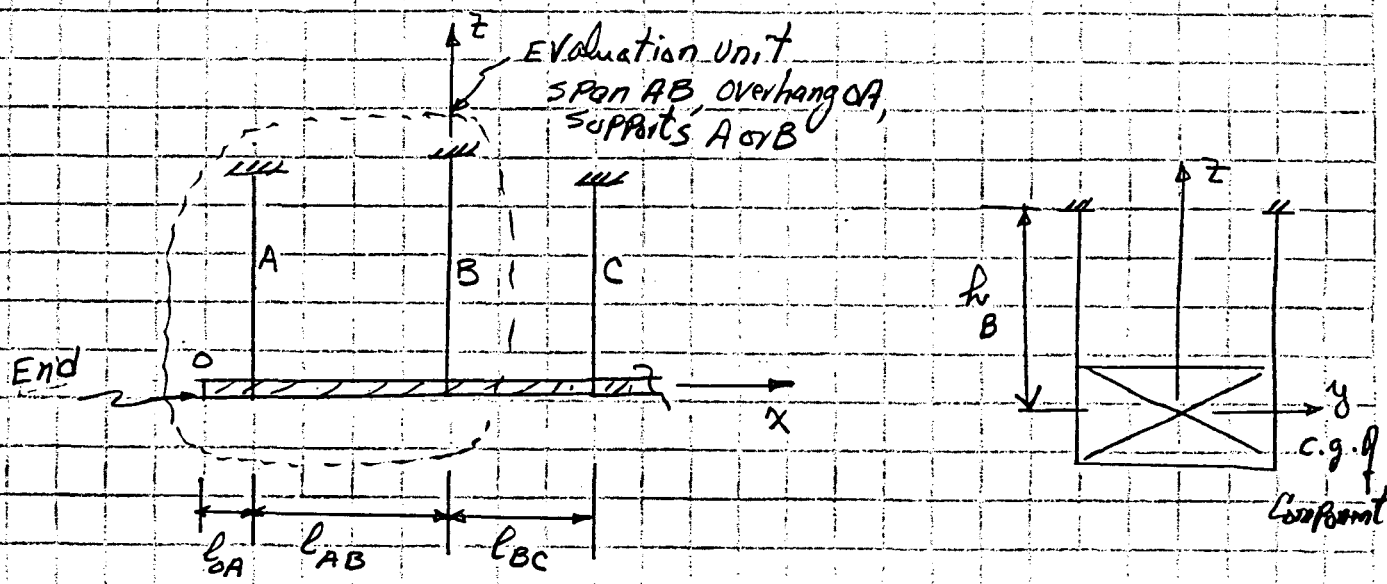 z
Evaluation unit
span AB, overhang OA,
supports A or B
A
B
C
O
End
x
l_OA
l_AB
l_BC
z
h_B
y
c.g. of
Component